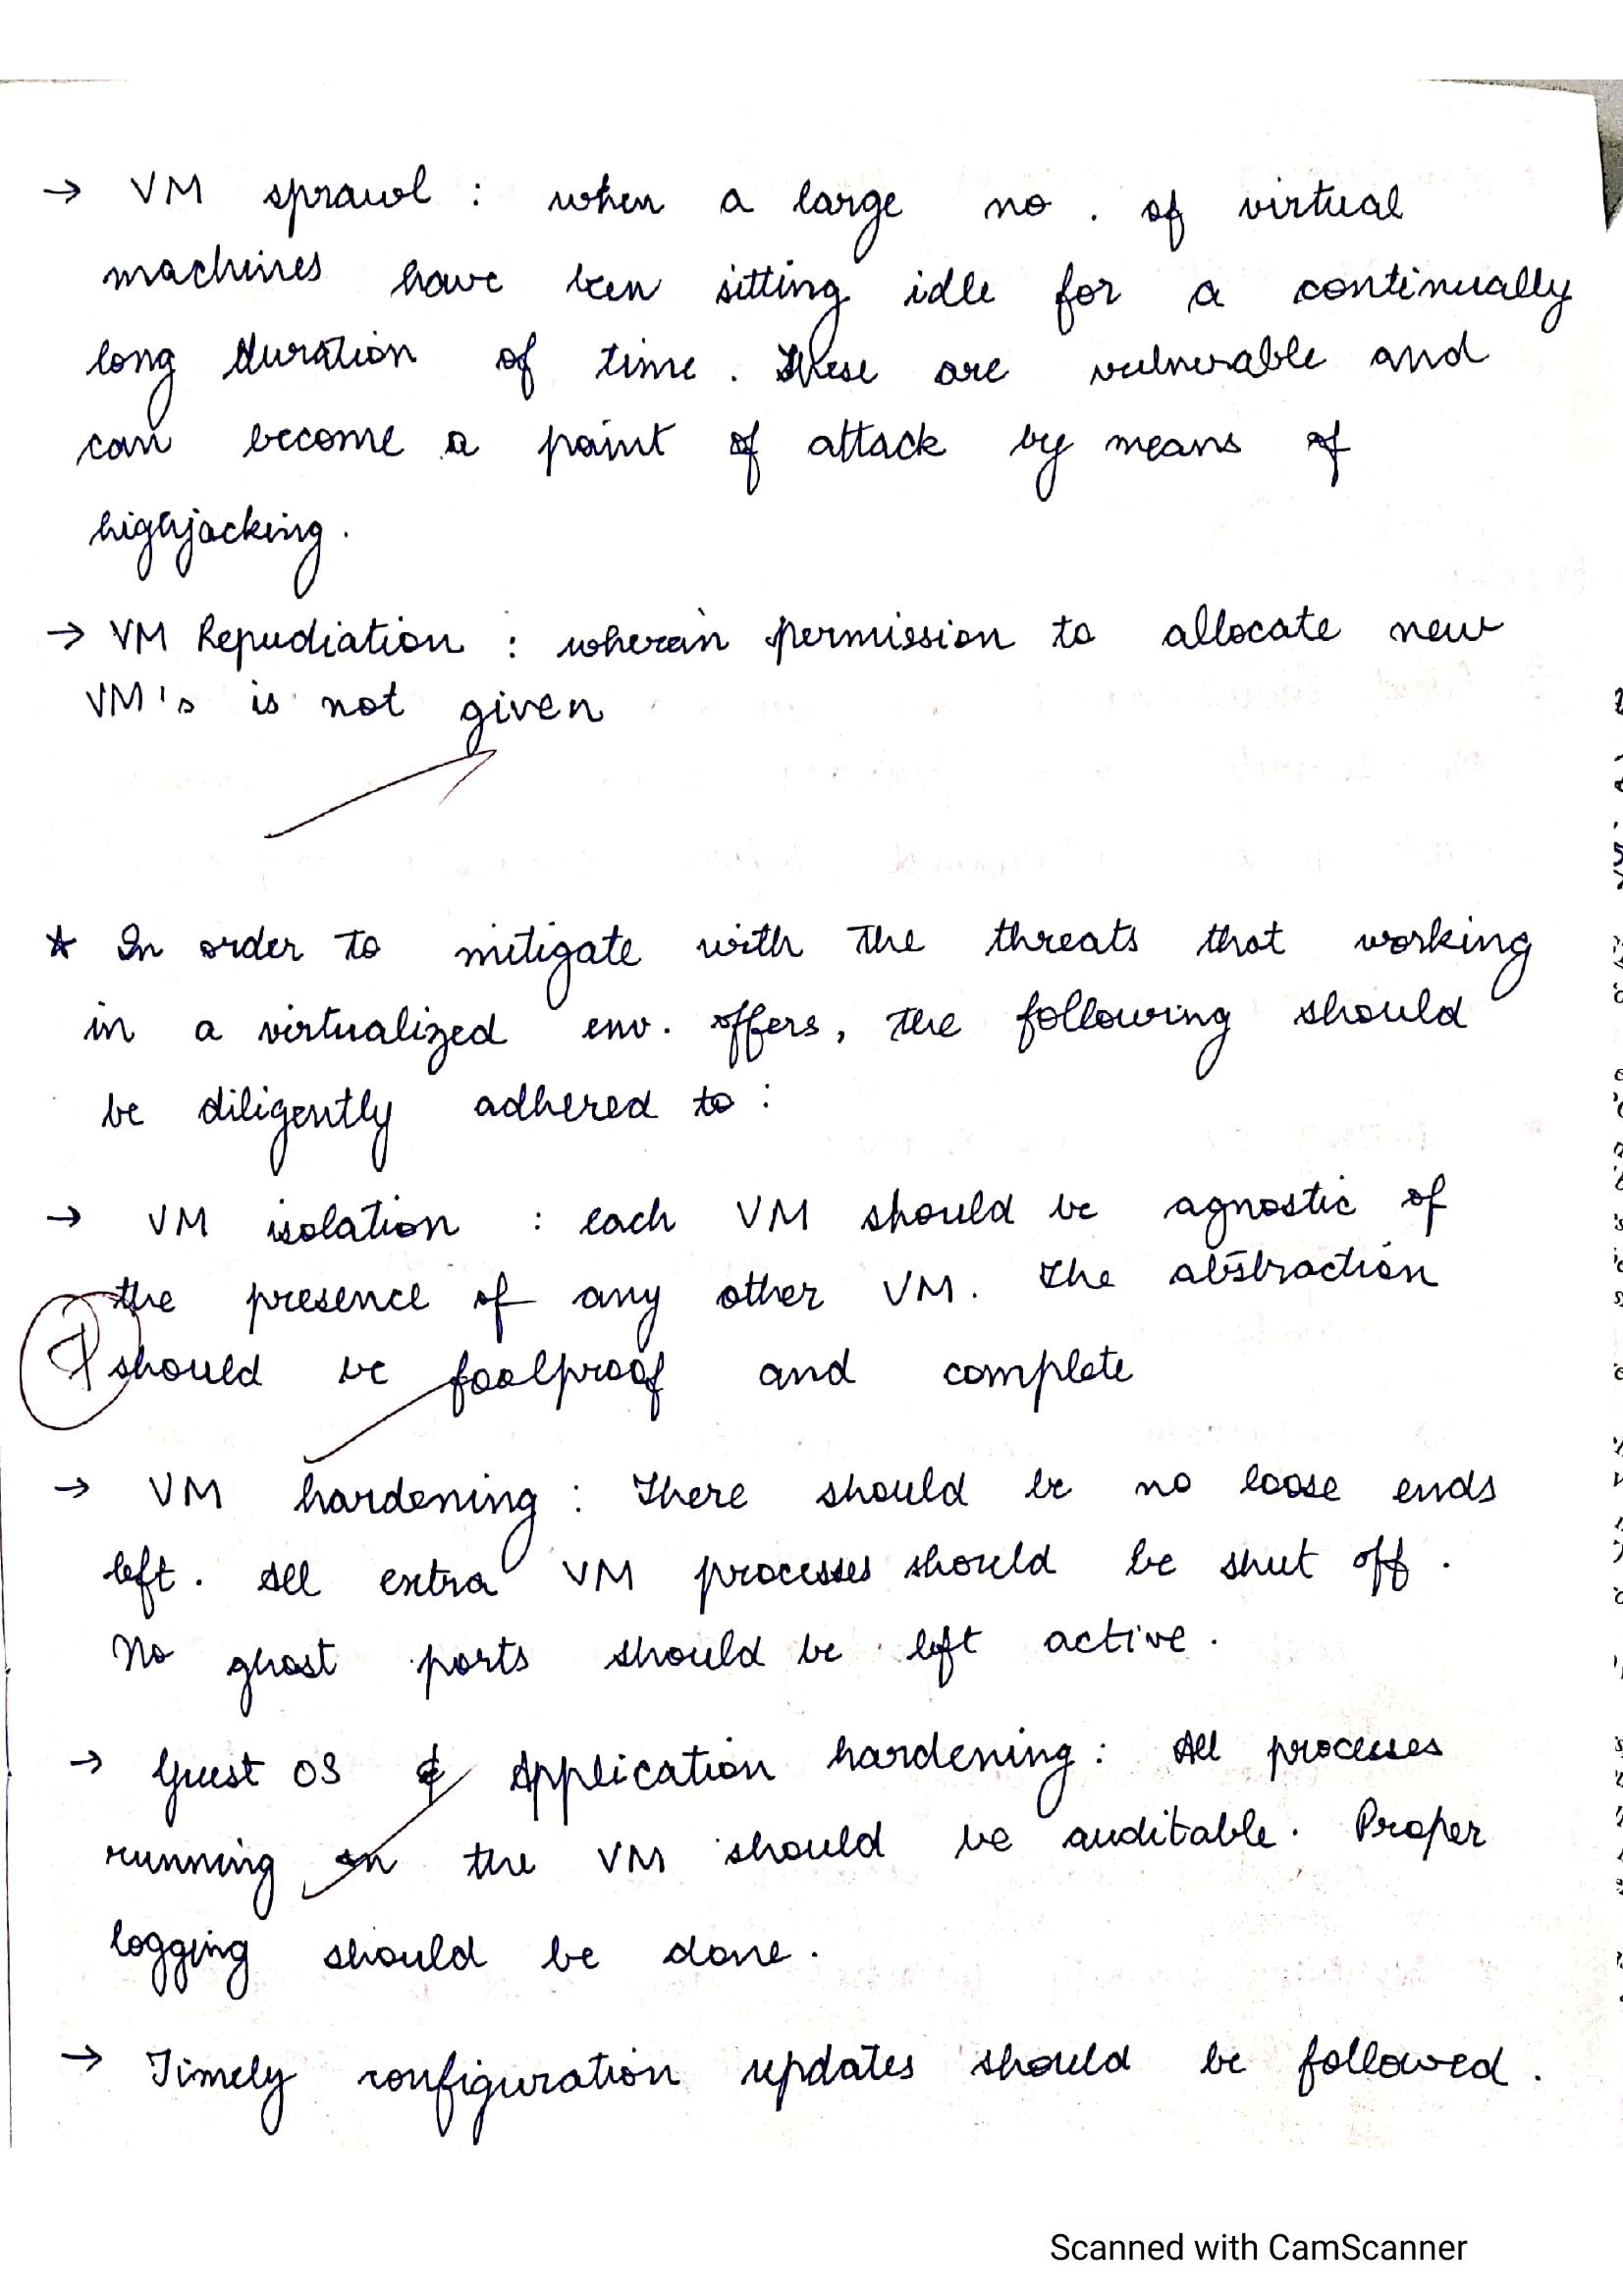 → VM sprawl : when a large no. of virtual
machines have been sitting idle for a continually
long duration of time. These are vulnerable and
can become a point of attack by means of
highjacking.
→ VM Repudiation : wherein permission to allocate new
VM's is not given
* In order to mitigate with the threats that working
in a virtualized env. offers, the following should
be diligently adhered to :
→ VM isolation : each VM should be agnostic of
the presence of any other VM. The abstraction
should be foolproof and complete
→ VM hardening : There should be no loose ends
left. All extra VM processes should be shut off.
No ghost ports should be left active.
→ Guest OS & Application hardening : All processes
running on the VM should be auditable. Proper
logging should be done.
→ Timely configuration updates should be followed.
Scanned with CamScanner